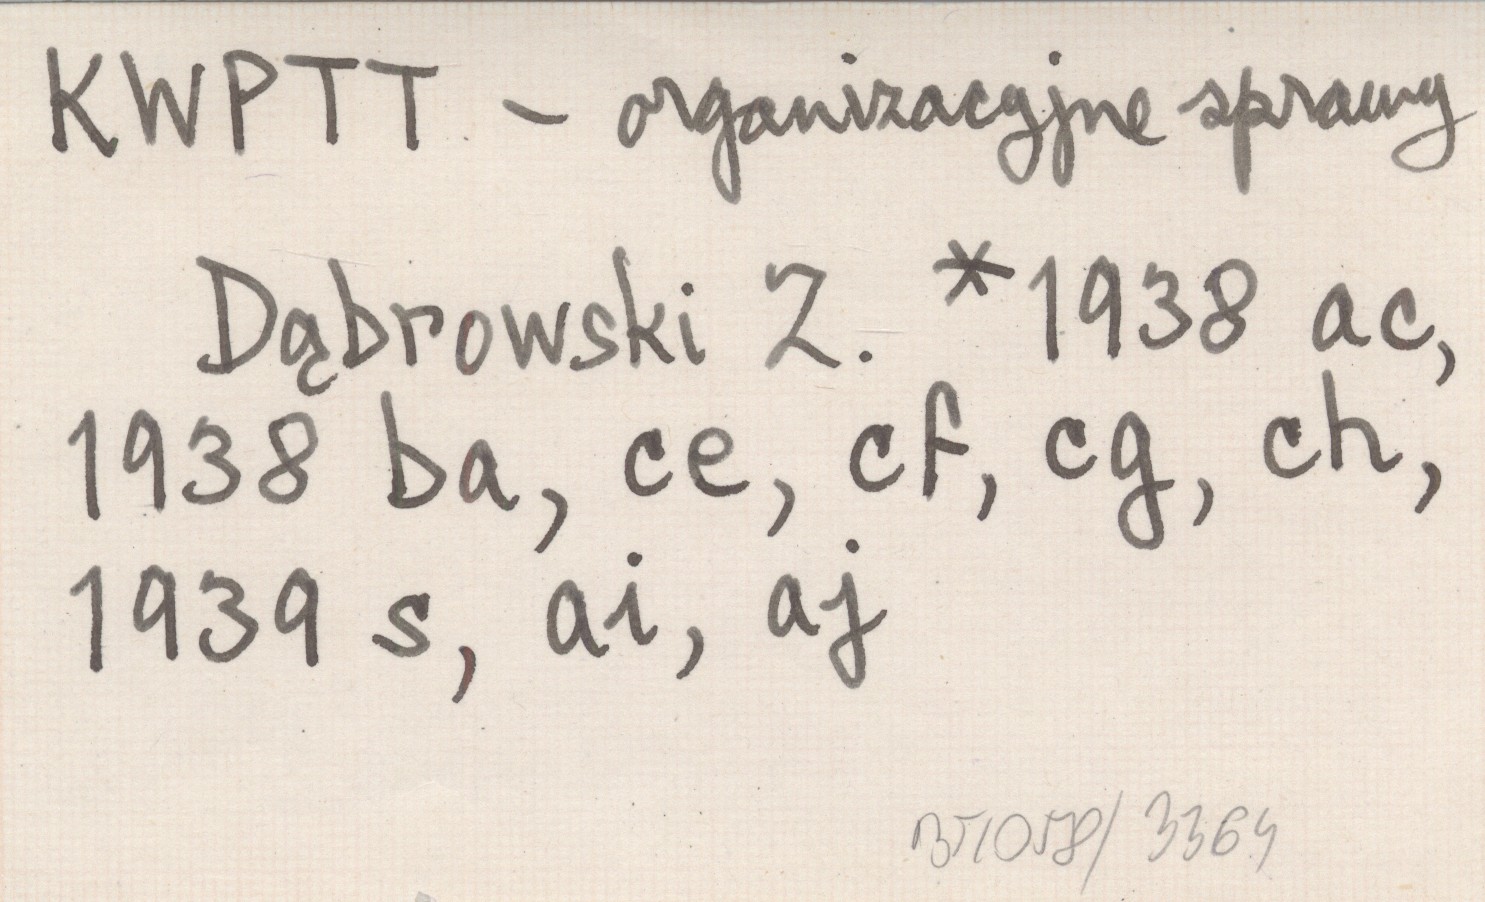 KWPTT - organizacyjne sprawy
Dąbrowski Z. *1938 ac,
1938 ba, ce, cf, cg, ch,
1939 s, ai, aj
3364